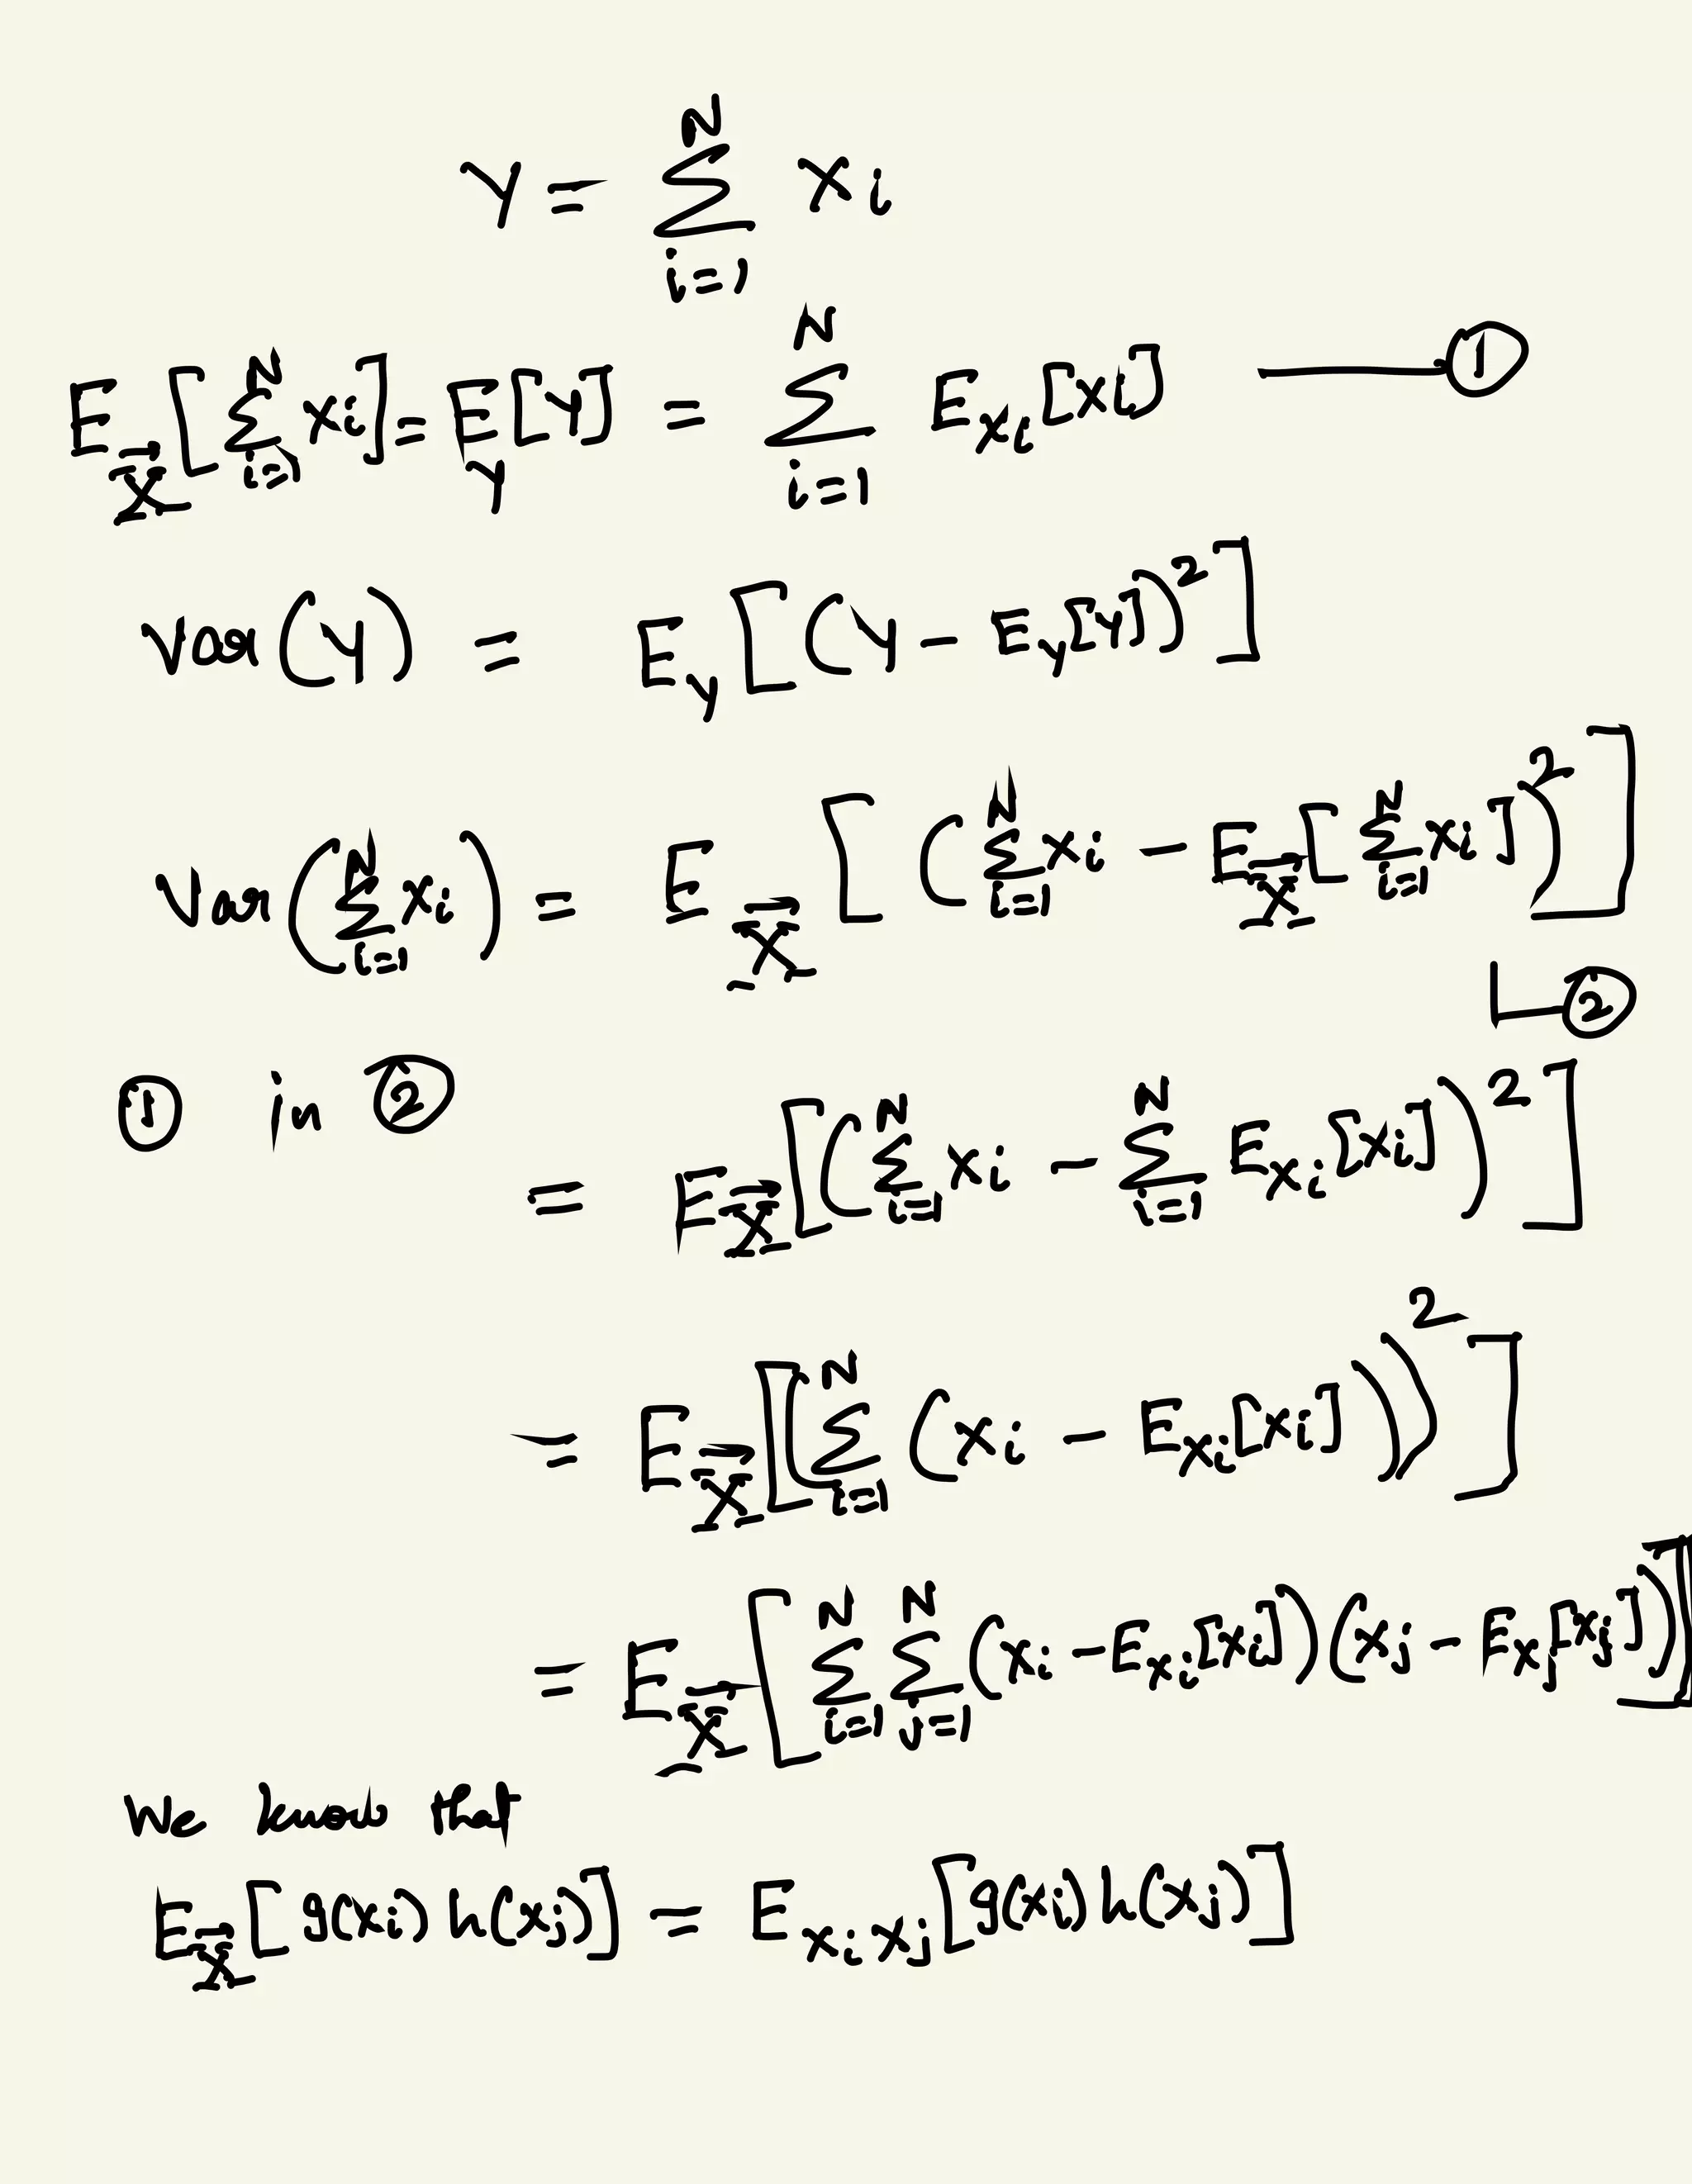 Y = \sum_{i=1}^{N} X_i
E_{\vec{X}} [ \sum_{i=1}^{N} X_i ] = E_Y [Y] = \sum_{i=1}^{N} E_{X_i} [X_i] —— ①
Var(Y) = E_Y [ (Y - E_Y[Y])^2 ]
Var( \sum_{i=1}^{N} X_i ) = E_{\vec{X}} [ ( \sum_{i=1}^{N} X_i - E_{\vec{X}} [ \sum_{i=1}^{N} X_i ] )^2 ]
②
① in ②
= E_{\vec{X}} [ ( \sum_{i=1}^{N} X_i - \sum_{i=1}^{N} E_{X_i} [X_i] )^2 ]
= E_{\vec{X}} [ ( \sum_{i=1}^{N} ( X_i - E_{X_i} [X_i] ) )^2 ]
= E_{\vec{X}} [ \sum_{i=1}^{N} \sum_{j=1}^{N} (X_i - E_{X_i} [X_i]) (X_j - E_{X_j} [X_j]) ]
We know that
E_{\vec{X}} [ g(X_i) h(X_j) ] = E_{X_i X_j} [ g(X_i) h(X_j) ]